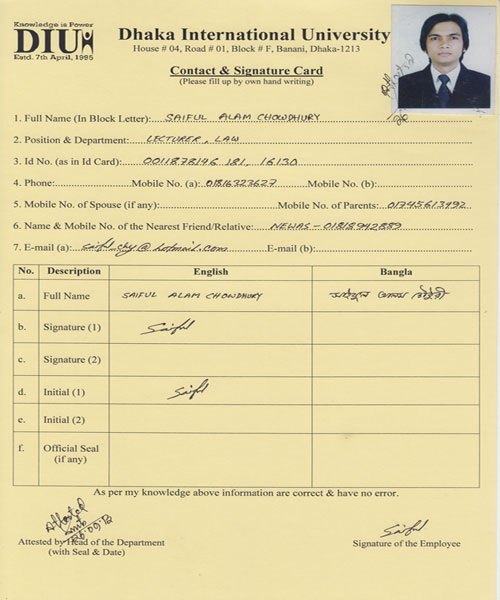 Knowledge is Power
DIU
Estd. 7th April, 1995
Dhaka International University
House # 04, Road # 01, Block # F, Banani, Dhaka-1213
Contact & Signature Card
(Please fill up by own hand writing)
Attested
1. Full Name (In Block Letter): SAIFUL ALAM CHOWDHURY
2. Position & Department: LECTURER, LAW
3. Id No. (as in Id Card): 0011878146 181, 16130
4. Phone: Mobile No. (a): 01816323627 Mobile No. (b):
5. Mobile No. of Spouse (if any): Mobile No. of Parents: 01745613492
6. Name & Mobile No. of the Nearest Friend/Relative: NEWAS - 01818942889
7. E-mail (a): saiful_chy@hotmail.com E-mail (b):
No. Description English Bangla
a. Full Name SAIFUL ALAM CHOWDHURY
b. Signature (1) Saiful
c. Signature (2)
d. Initial (1) Saiful
e. Initial (2)
f. Official Seal
(if any)
As per my knowledge above information are correct & have no error.
Attested
Saiful
Attested by Head of the Department
(with Seal & Date)
Signature of the Employee